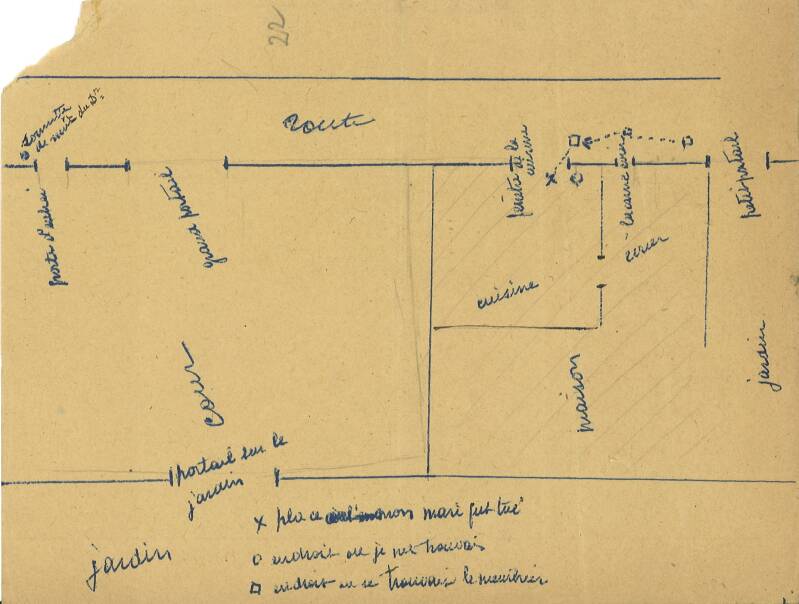 22
route
de nuit du Dr
porte d'entrée
grand portail
fenêtre de la
cuisine
petit portail
évier
cuisine
maison
jardin
cour
portail sur le
jardin
jardin
x place mon mari fut tué
o endroit où je me trouvais
□ endroit où se trouvait le meurtrier